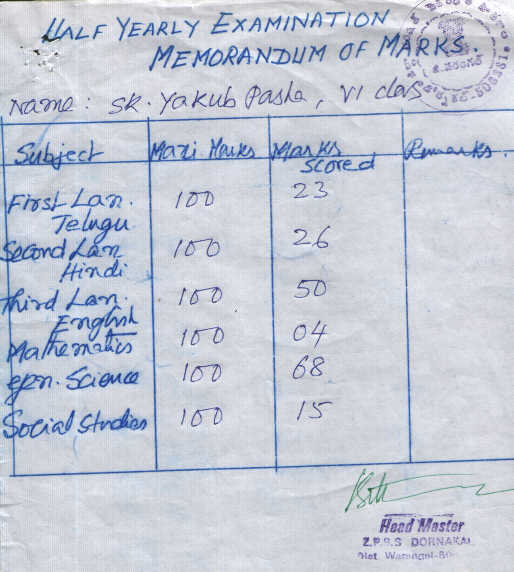 HALF YEARLY EXAMINATION
MEMORANDUM OF MARKS.
Name: SK. Yakub Pasha, VI class
Subject Maxi Marks Marks scored Remarks.
First Lan. Telugu 100 23
Second Lan Hindi 100 26
Third Lan. English 100 50
Mathematics 100 04
gen. Science 100 68
Social Studies 100 15
Head Master
Z.P.S.S DORNAKAL
Dist. Warangal-50